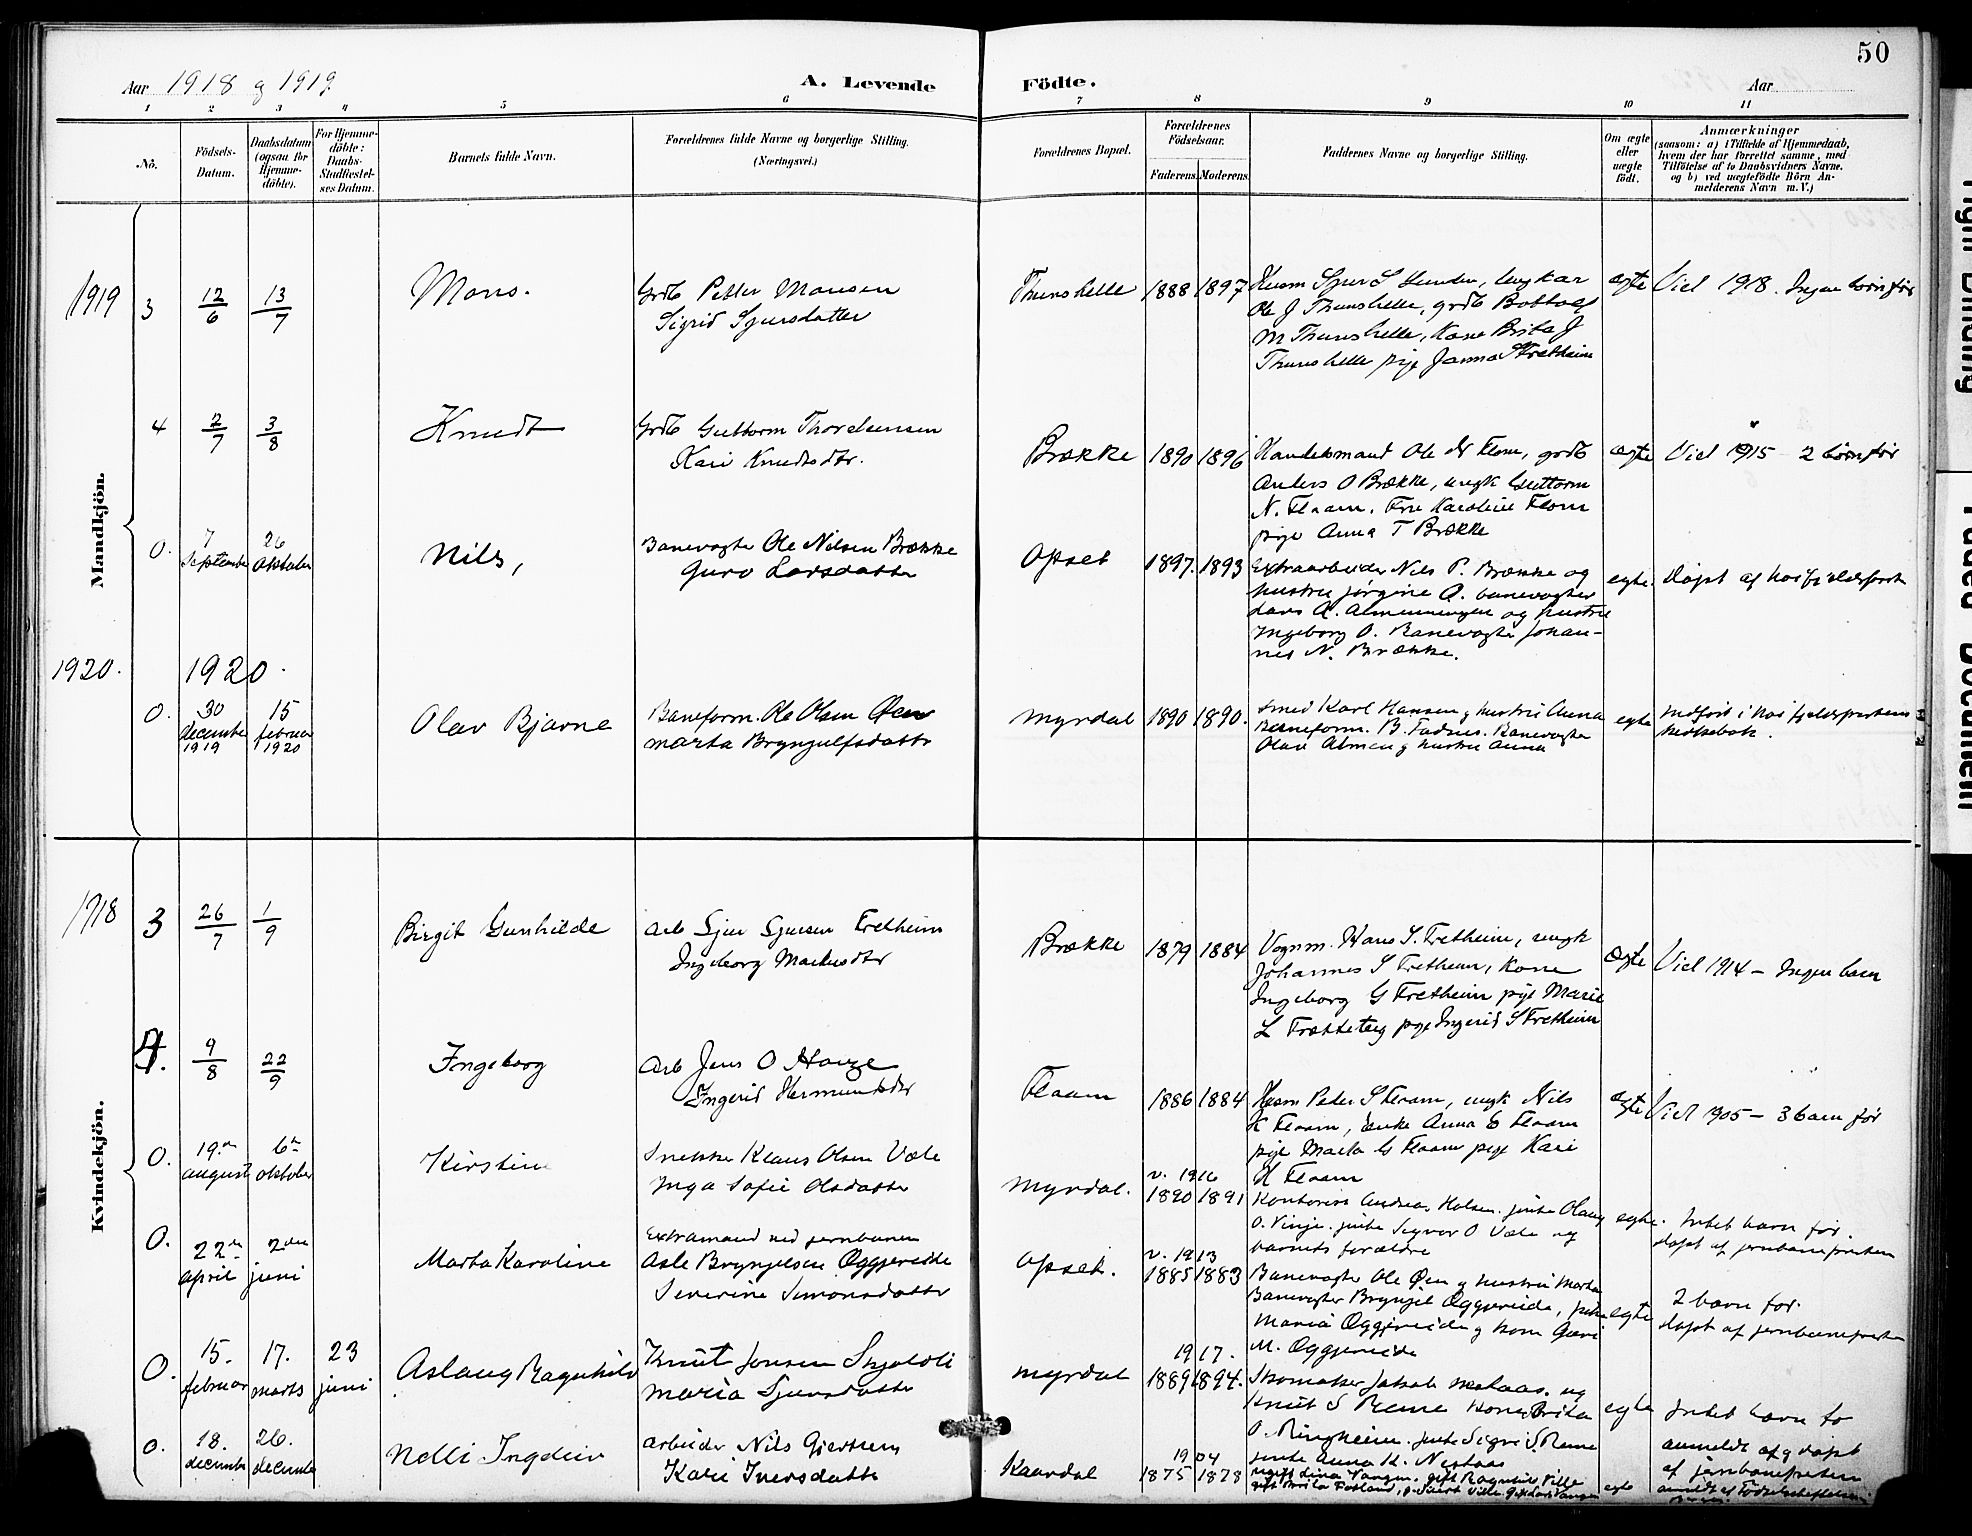 50
Aar 1918 og 1919.
A. Levende
Födte.
Aar
1 2 3 4 5 6 7 8 9 10 11
No.
Födsels-
Datum.
Daabsdatum
(ogsaa for
Hjemme-
döbte).
For Hjemme-
döbte:
Daabs-
Stadfæstel-
ses Datum.
Barnets fulde Navn.
Forældrenes fulde Navne og borgerlige Stilling.
(Næringsvei.)
Forældrenes Bopæl.
Forældrenes
Födselsaar.
Faderens. Moderens.
Faddernes Navne og borgerlige Stilling.
Om ægte
eller
uægte
födt.
Anmærkninger
(saasom: a) i Tilfælde af Hjemmedaab,
hvem der har forrettet samme, med
Tilföielse af to Daabsvidners Navne.
og b) ved uægtefödte Börn An-
melderens Navn m. V.)
Mandkjön.
1919 3
12/6
13/7
Mons.
Grdb Petter Monsen
Sigrid Sjursdatter
Thunshelle
1888 1897
Ole J Thunshelle, grdb
M Thunshelle, Kone Brita J
Thunshelle pige Janna Fretheim
ægte
Viet 1918. Ingen børn før
4
2/7
3/8
Knudt
Grdb Guttorm Thorelsensen
Kari Knudtsdtr.
Brække
1890 1896
Handelsmand Ole N Flom, grdb
Anders O Brække, ungk Guttorm
N. Flaam. Fru Karoline Flom
pige Anna T Brække
ægte
Viet 1915 - 2 børn før
0.
7
September
26
Oktober
Nils,
Banevogter Ole Nilsen Brække
Guro Larsdatter
Opset
1897. 1893
Extraarbeider Nils P. Brække og
hustru Jørgine A. banevogter
Lars A. Almenningen og hustru
Ingeborg O. Banevogter Johan-
nes N. Brække.
egte.
døpt af høifjeldsprest
1920.
1920.
0.
30
december
1919
15
februar
1920
Olav Bjarne
Baneform. Ole Olsen Øen
Marta Bryngulfsdatter
Myrdal
1890 1890.
Smed Karl Hansen og hustru Anna
Baneform. B. Fadnes. Banevogter
Olav Almen og hustru Anna
egte
Indført i høifjeldsprestens
kirkebok.
Kvindekjön.
1918
3
26/7
1/9
Birgit Gunhilde
Arb Sjur Sjursen Fretheim
Ingeborg Markusdtr
Brække
1879 1884
Vognm. Hans S. Fretheim, ungk
Johannes S Fretheim, Kone
Ingeborg G Fretheim pige Marie
L Frætteteig pige Ingerid S Fretheim
ægte
Viet 1914 - Ingen barn
4.
9/8
22/9
Ingeborg
Arb Jens O Houge
Ingerid Hermundsdtr
Flaam
1886 1884
Husm Peder S Flaam, ungk Nils
K Flaam, Enke Anna E Flaam
pige Marta G Flaam pige Kari
H Flaam
ægte
Viet 1905 - 3 barn før
0.
19de
august
6te
oktober
Kirstine
Snekker Klaus Olsen Vale
Inga Sofie Olsdatter
Myrdal.
v. 1916
1890 1891
Kontorist Andreas Holsen. jente Olaug
O. Vinje. jente Sigvor O Vale og
barnets forældre
egte.
Intet barn før.
døpt af jernbanepresten
0.
22de
april
2den
juni
Marta Karoline
Extramand ved jernbanen
Asle Bryngelsen Øggjereide
Severine Simonsdatter
Opset.
v. 1913
1885 1883
Banevogter Ole Øen og hustru Marta
Banevogter Bryngil Øggjereide,
Maria Øggjereide og kone Guri
M. Øggjereide
egte
2 barn før.
døpt af jernbanepresten
0.
15.
februar
17.
marts
23
juni
Aslaug Ragnhild
Knut Jensen Skjoldli
Maria Sjursdatter
Myrdal
1917.
1889 1894.
Skomaker Jakob og
Knut S Reme kone Brita
O. Ringheim. jente Sigri S. Reme
jente Anna K. Nestaas
egte
Intet barn før
anmeldt af og døpt
af jernbanepresten
0.
18.
december
26.
december
Nelli Ingdeiv
Arbeider Nils Gjertsen
Kari Iversdatter
Kaardal
1904
1875 1878
Vangen. gift Ragnhild Ville
gift Brita Fotland,
egte